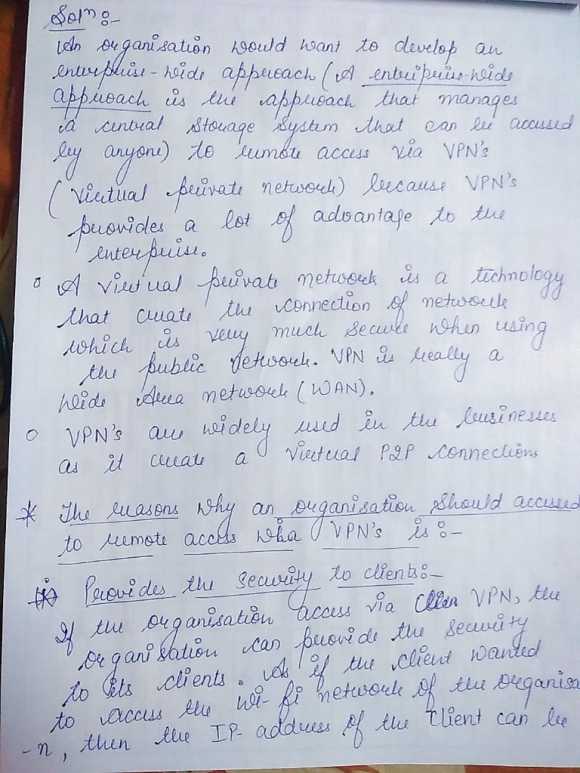 Solⁿ :-
An organisation would want to develop an
enterprise-wide approach (A enterprise-wide
approach is the approach that manages
a central storage system that can be accused
by anyone) to remote access via VPN's
(virtual private network) because VPN's
provides a lot of advantage to the
enterprise.
o A virtual private network is a technology
that create the connection of network
which is very much secure when using
the public network. VPN is really a
Wide Area network (WAN).
o VPN's are widely used in the businesses
as it create a virtual P2P connections
* The reasons why an organisation should accused
to remote access wha VPN's is :-
(i) Provides the security to clients :-
If the organisation access via VPN, the
organisation can provide the security
to its clients. As if the client wanted
to access the wi-fi network of the organisa
-n, then the IP-address of the client can be